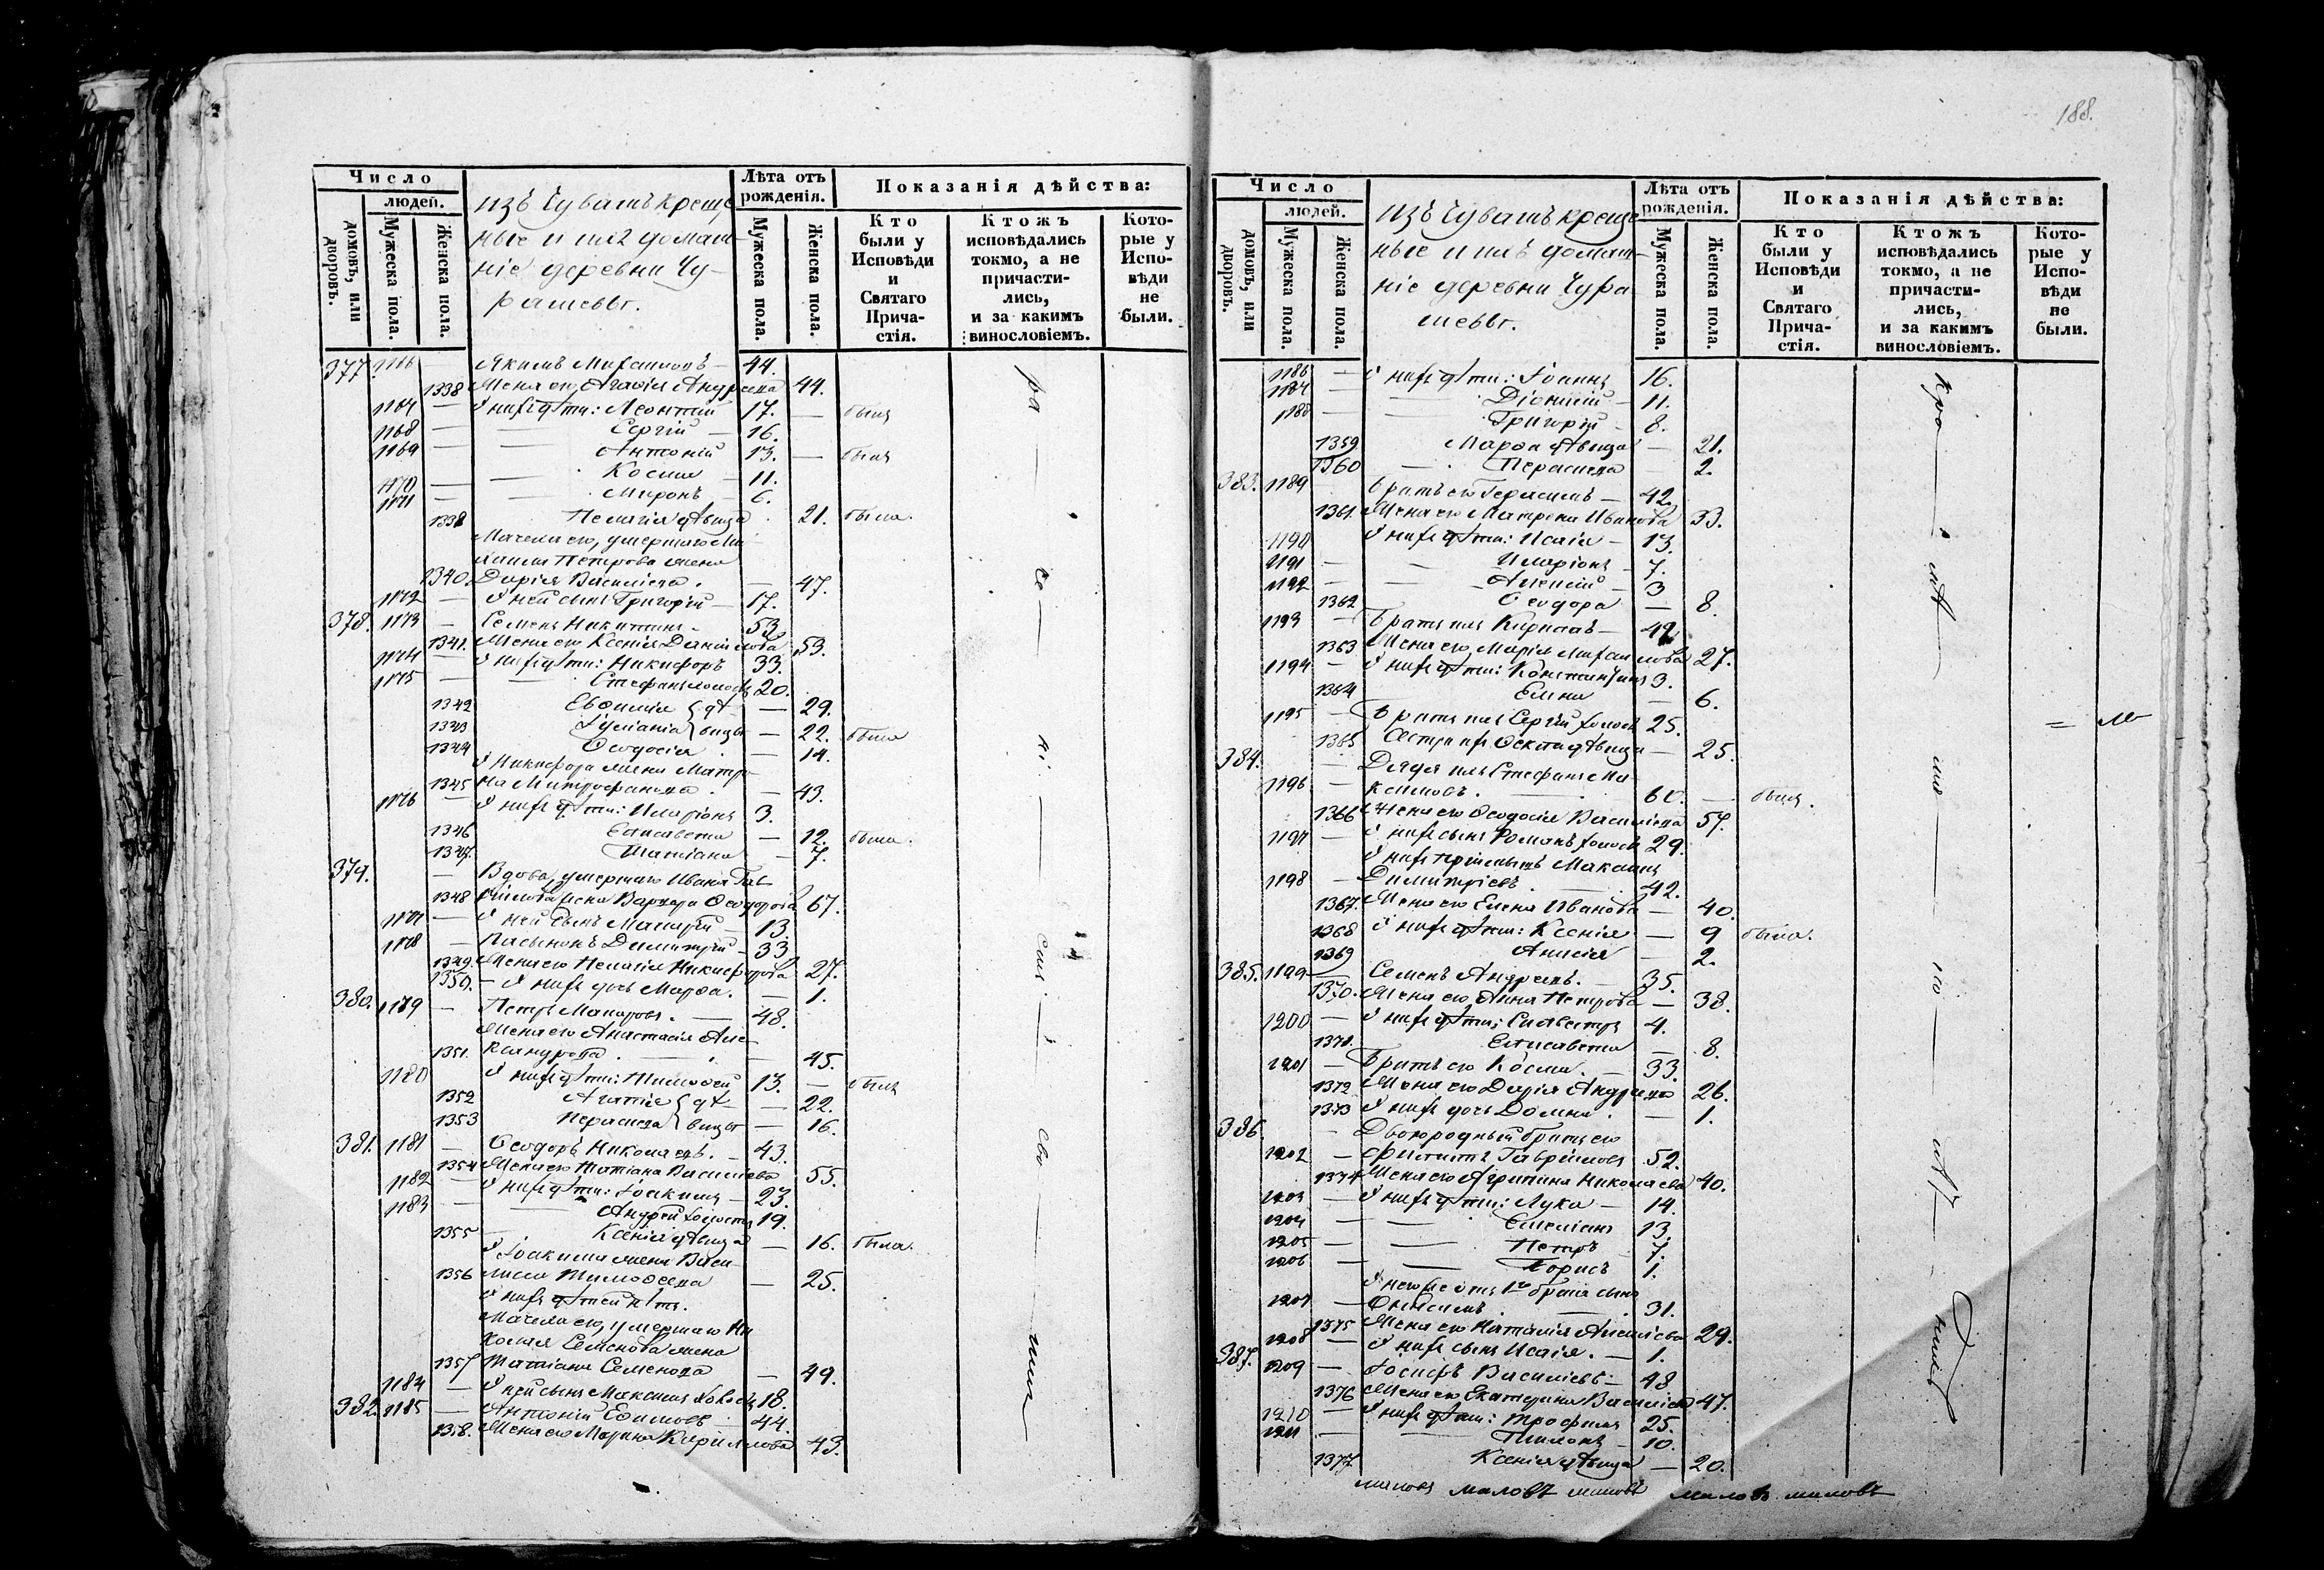 Число
людей.
домовъ, или дворовъ.
Мужеска пола.
Женска пола.
изъ Чувашъ креще
ные и ихъ домаш-
ніе деревни Чу-
рашевы.
Лѣта отъ рожденія.
Мужеска пола.
Женска пола.
Показанія дѣйства:
Кто были у Исповѣди и Святаго Прича-стія.
Ктожъ исповѣдались токмо, а не причасти-лись, и за какимъ винословіемъ.
Кото-рые у Испо-вѣди не были.
377. 1166 Якимъ Михайловъ — 44.
1338 Жена его Агаѳія Андреева 44.
У нихъ дѣти: Леонтій 17. — былъ
1168 — Сергій — 16.
1169 — Антоній 13. — былъ
1170 — Косма 11.
1171 — Миронъ 6.
Пелагія дѣвица 21. была.
Мачеха его, умершаго Ми
хаила Петрова жена
1340. Дарія Васильева. — 47.
1172 — У ней сынъ Григорій — 17.
378. 1173 — Семенъ Никитинъ 53.
1341. Жена его Ксенія Данилова 53.
1174 — У нихъ дѣти: Никифоръ 33.
1175 — Стефанъ холостъ 20.
1342 Евѳимія } дѣ — 29.
1343 Іуліанія } вицы — 22. была
1344 Ѳеодосія — 14.
У Никифора жена Матро
1345 на Митрофанова. — 43.
1176 — У нихъ дѣти: Иларіонъ 3.
1346 Елисавета — 12. была.
1347. Татіана — 7.
379. — Вдова, умершаго Ивана Гав
1348 рилова жена Варвара Ѳеодорова 67.
1177 — У ней сынъ 13.
1178 — Пасынокъ Димитрій — 33.
1349. Жена его Пелагія Никифорова 27.
1350. — У нихъ дочь Марѳа. — 1.
380. 1179 — Петръ Макаровъ. — 48.
Жена его Анастасія Але
1351. ксандрова. — 45.
1180 У нихъ дѣти: Тимоѳей 13. — былъ
1352 Агапія } дѣ — 22.
1353 Параскева } вицы — 16.
381. 1181 — Ѳеодоръ Николаевъ. — 43.
1354 Жена его Татіана Васильева 55.
1182 — У нихъ дѣти: Іоакимъ — 23.
1183 — Андрей холостъ 19.
1355 — Ксенія дѣвица — 16. была.
У Іоакима жена Васи
1356 лиса Тимоѳеева — 25.
У нихъ дѣтей нѣтъ.
Мачеха его, умершаго Ни
колая Семенова жена
1357 Татіана Семенова — 49.
1184 — У ней сынъ Максимъ холостъ 18.
382. 1185 — Антоній Ефимовъ — 44.
1358. Жена его Марина Кириллова 43.
188.
Число
людей.
домовъ, или дворовъ.
Мужеска пола.
Женска пола.
изъ Чувашъ креще
ные и ихъ домаш-
ніе деревни Чура
шевы.
Лѣта отъ рожденія.
Мужеска пола.
Женска пола.
Показанія дѣйства:
Кто были у Исповѣди и Святаго Прича-стія.
Ктожъ исповѣдались токмо, а не причасти-лись, и за какимъ винословіемъ.
Кото-рые у Испо-вѣди не были.
1186 — У нихъ дѣти: Іоаннъ 16.
— Діонисій — 11.
1188 — Григорій — 8.
1359 Марѳа дѣвица — 21.
1360 — Параскева 2.
383. 1189 Братъ его Герасимъ — 42.
1361. Жена его Матрена Иванова 33.
1190 У нихъ дѣти: Исаія — 13.
1191 — Иларіонъ — 7.
1192 — Алексій — 3
1362 Ѳеодора — 8.
1193 — Братъ ихъ Кириллъ —
1363 Жена его Марія Михайлова 27.
1194 — У нихъ дѣти: Константинъ 3.
1364 Елена — 6.
1195 — Братъ ихъ Сергій холостъ 25.
1365 Сестра ихъ Ѳекла дѣвица — 25.
384. — Дядя ихъ Стефанъ
1196 60. — былъ.
1366 Жена его Ѳеодосія Васильева 57.
1197 — У нихъ сынъ Романъ холостъ 29.
У нихъ пріемышъ Максимъ
1198 — Димитріевъ. — 42.
1367. Жена его Елена Иванова — 40.
1368 У нихъ дѣти: Ксенія — 9 была.
1369 Анисія — 2.
385. 1199 — Семенъ Андреевъ. — 35.
1370. Жена его Анна Петрова — 38.
1200 — У нихъ дѣти: Сильвестръ 4.
1371. Елисавета — 8.
1201 — Братъ его Косма. — 33.
1372 Жена его Дарія Андреева 26.
1373 У нихъ дочь Домна. — 1.
386. — Двоюродный братъ его
1202 — Филиппъ Гавриловъ 52.
1374 Жена его Агрипина Николаева 40.
1203 — У нихъ дѣти: Лука — 14.
1204 — Емеліанъ 13.
1205 — Петръ 7.
1206 — Борисъ 1.
1207 — Онисимъ. — 31.
1375 Жена его Наталія Алексіева 29.
1208 — У нихъ сынъ Исаія. — 1.
387. 1209 — Іосифъ Васильевъ — 48
1376 Жена его Екатерина Васильева 47.
1210 — У нихъ дѣти: Трофимъ 25.
1211 — 10.
1377. Ксенія дѣвица — 20.
маловъ маловъ маловъ маловъ маловъ